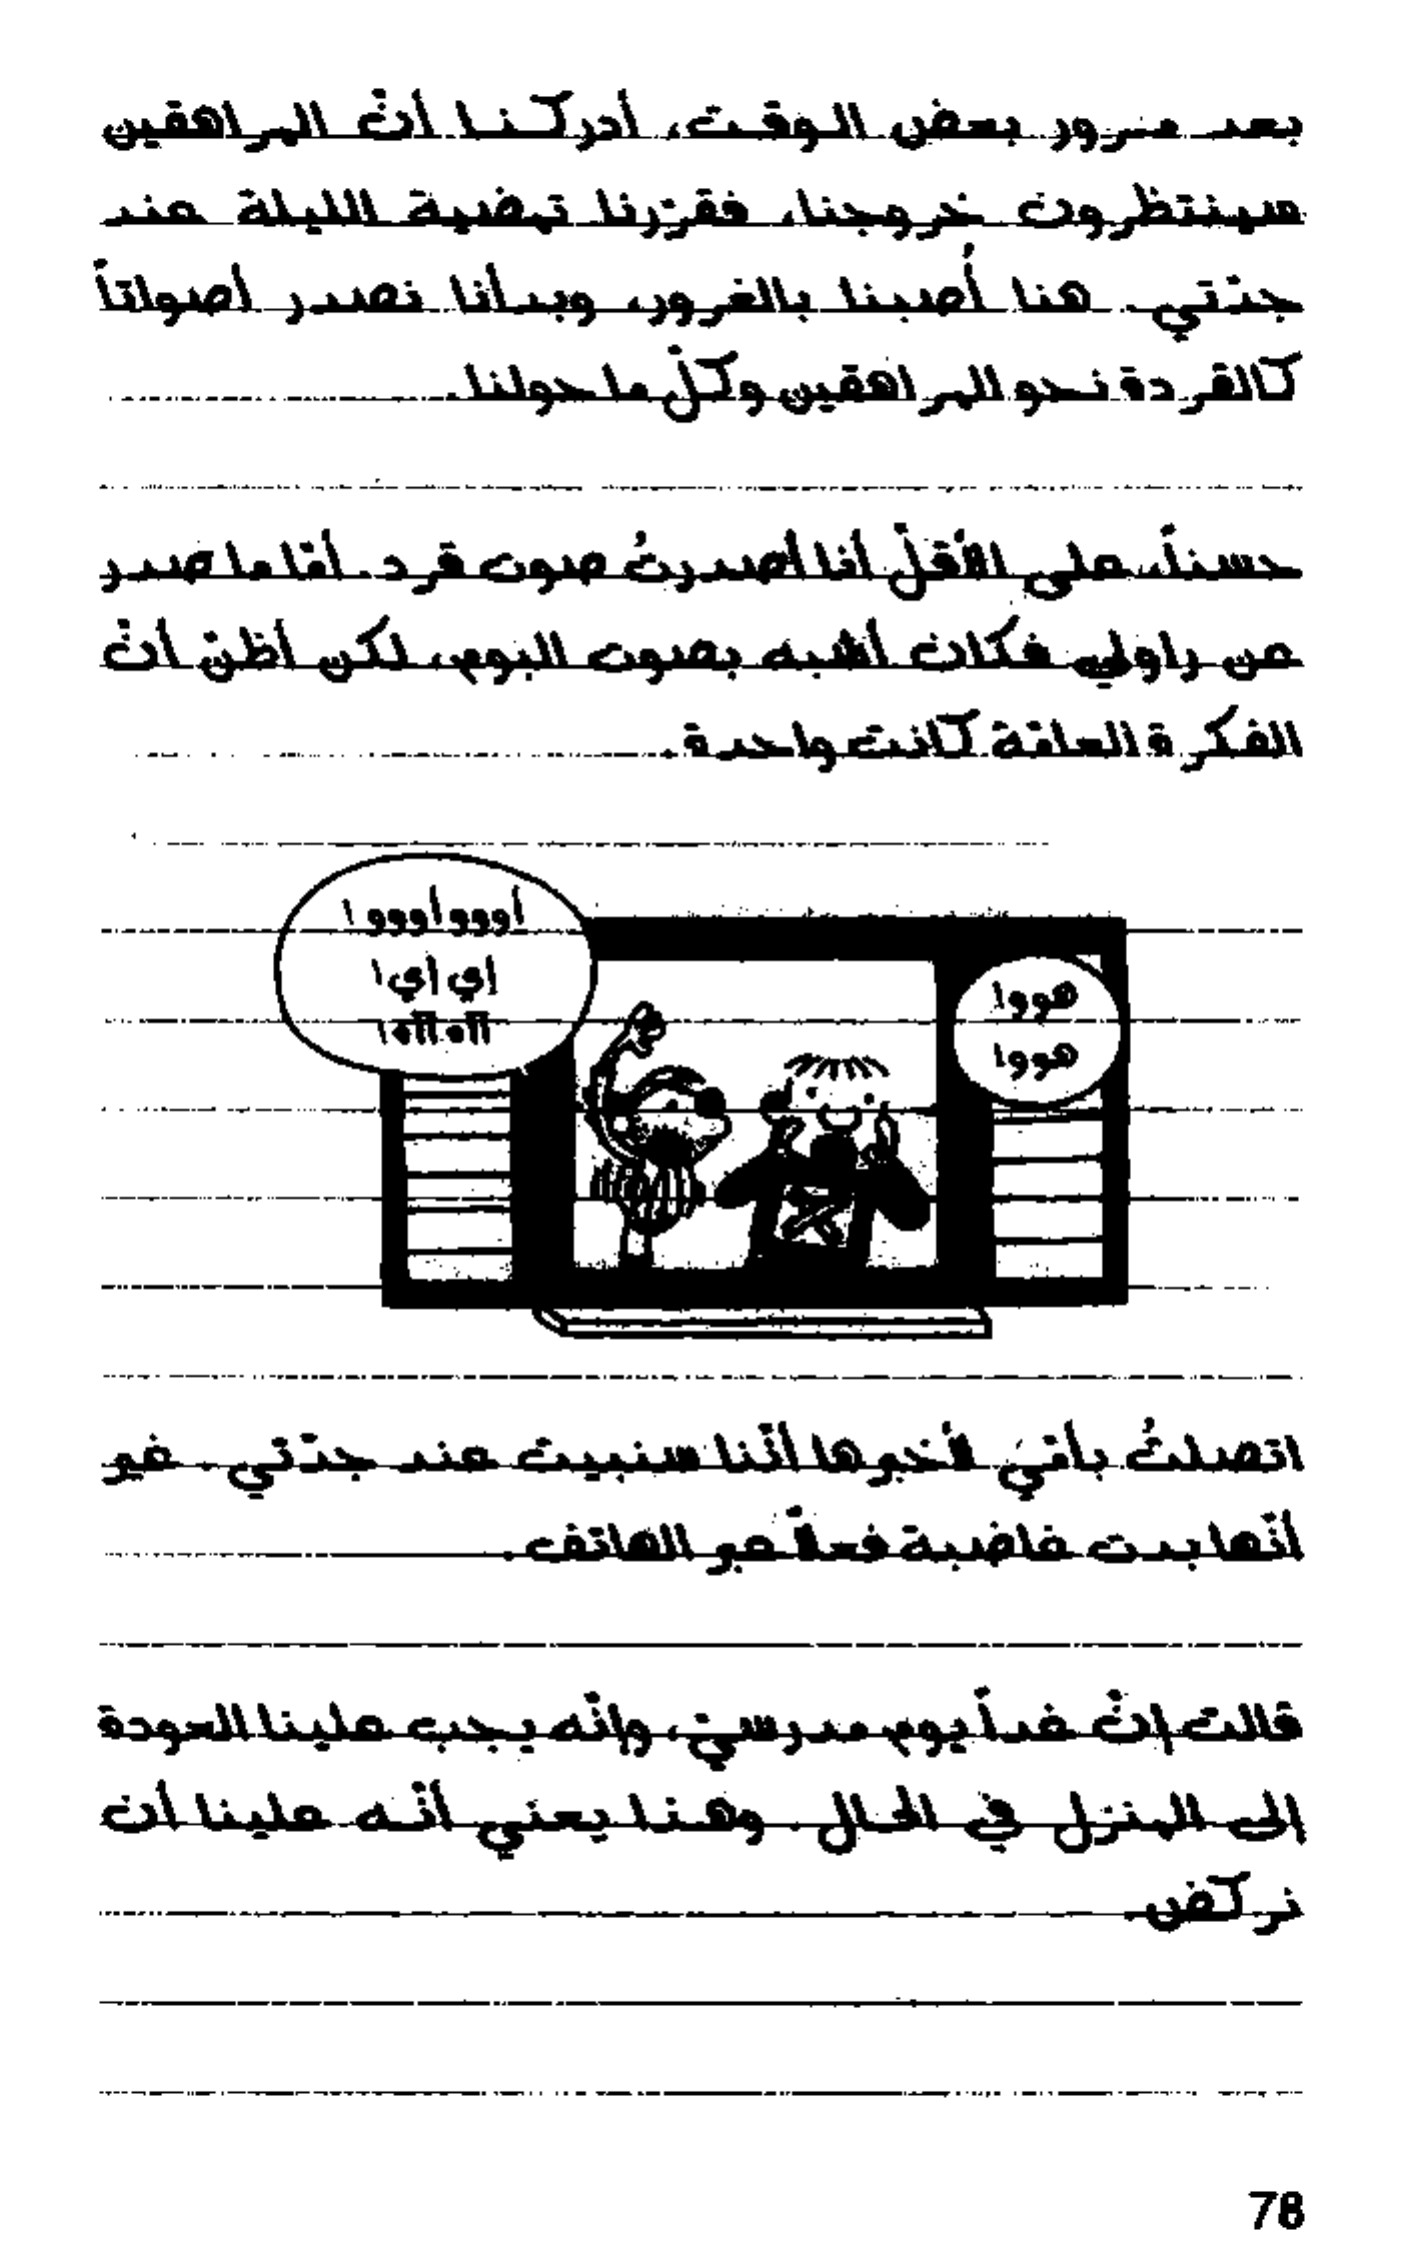 بعد مرور بعض الوقت، أدركنا أنّ المراهقين
سينتظرون خروجنا، فقرّرنا تمضية الليلة عند
جدّتي. هنا أُصبنا بالغرور، وبدأنا نصدر أصواتاً
كالقردة نحو المراهقين وكلّ ما حولنا.
حسناً، على الأقلّ أنا أصدرتُ صوت قرد. أمّا ما صدر
عن راولي فكان أشبه بصوت البوم، لكن أظنّ أنّ
الفكرة العامّة كانت واحدة.
أوووأووو!
إي إي!
آآه آآه!
هووو!
هووو!
اتصلتُ بأمّي لأخبرها أنّنا سنبيت عند جدّتي. غير
أنّها بدت غاضبة فعلاً عبر الهاتف.
قالت إنّ غداً يوم مدرسيّ، وإنّه يجب علينا العودة
إلى المنزل في الحال. وهذا يعني أنّه علينا أن
نركض.
78